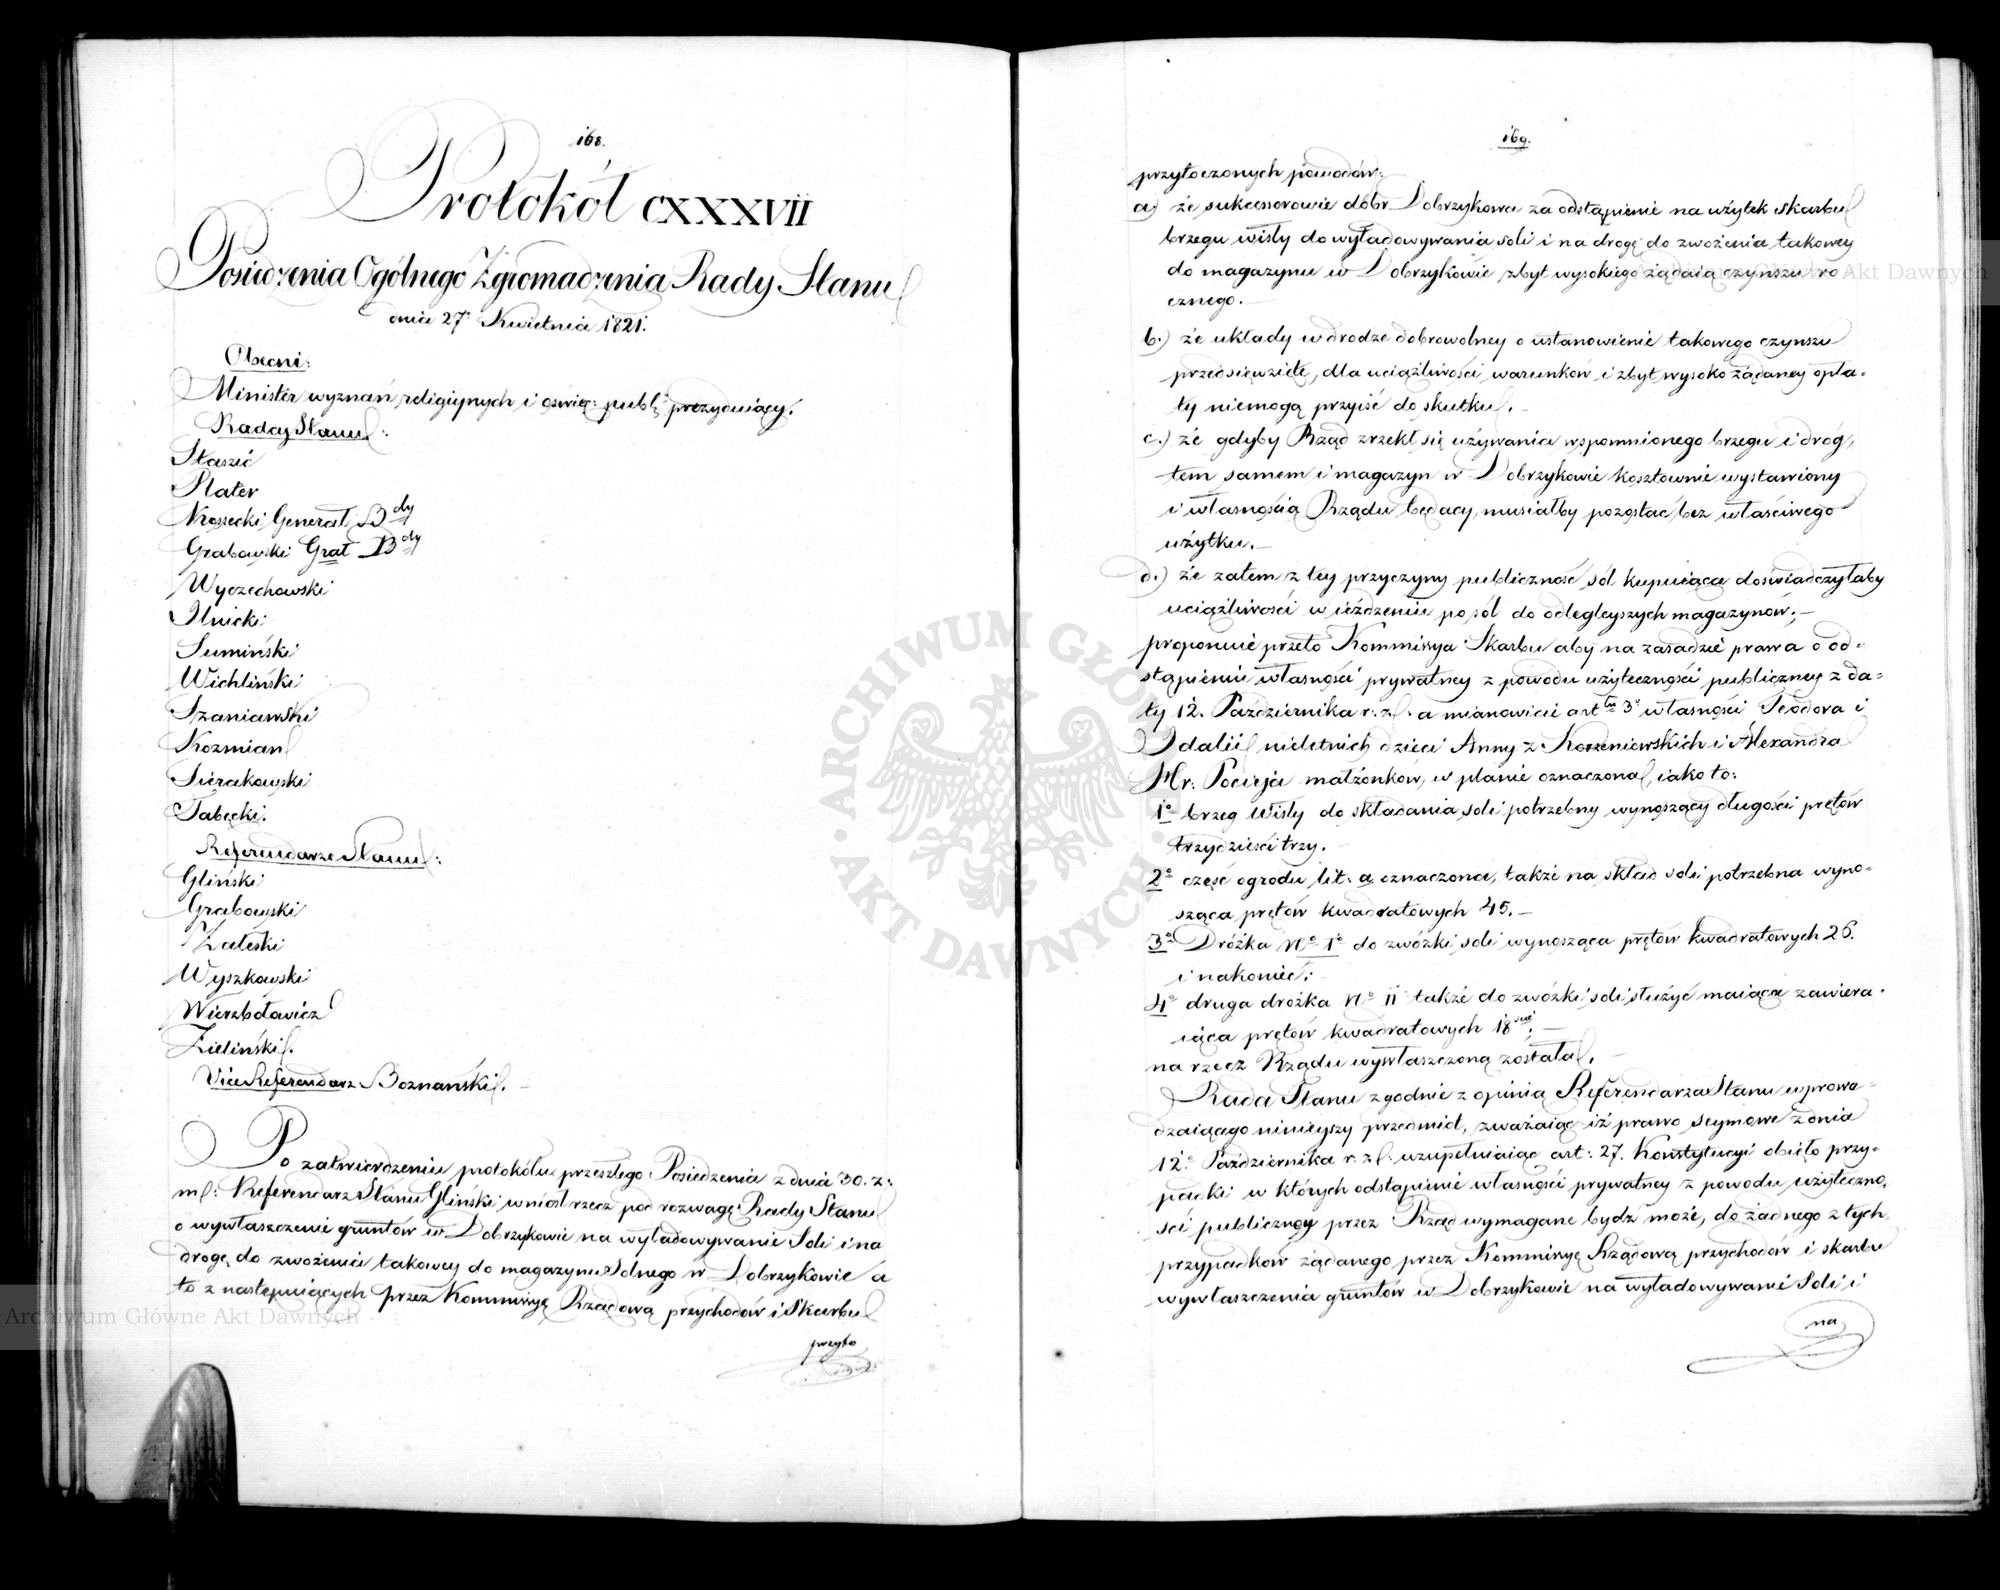 168.
Protokół CXXXVII
Posiedzenia Ogólnego Zgromadzenia Rady Stanu
dnia 27o Kwietnia 1821.
Obecni:
Minister wyznań religiynych i oświę: publ: prezyduiący.
Radcy Stanu:
Staszic
Plater
Kossecki Generał Bdy
Grabowski Grał Bdy
Wyczechowski
Ilnicki
Sumiński
Wichliński
Szaniawski
Kozmian
Sierakowski
Tabęcki.
Referendarze Stanu:
Gliński
Grabowski
Zaleski
Wyszkowski
Wierzbołowicz
Zieliński.
Vice Referendarz Boznański.
Po zatwierdzeniu protokółu przeszłego Posiedzenia z dnia 30. z:
m: Referendarz Stanu Gliński wniosł rzecz pod rozwagę Rady Stanu
o wywłaszczenie gruntów w Dobrzykowie na wyładowywanie Soli i na
drogę do zwożenia takowey do magazynu Solnego w Dobrzykowie a
to z następuiących przez Kommissyę Rządową przychodów i Skarbu
przyto
169.
przytoczonych powodów:
a) że sukcessorowie dóbr Dobrzykowa za odstąpienie na użytek skarbu
brzegu wisły do wyładowywania soli i na drogę do zwożenia takowey
do magazynu w Dobrzykowie zbyt wysokiego żądaią czynszu ro
cznego.
b.) że układy w drodze dobrowolney o ustanowienie takowego czynszu
przedsięwzięte, dla uciążliwości warunków i zbyt wysoko żądaney opła-
ty niemogą przyiść do skutku.
c.) że gdyby Rząd zrzekł się używania wspomnionego brzegu i dróg,
tem samem i magazyn w Dobrzykowie kosztownie wystawiony
i własnością Rządu będący, musiałby pozostać bez właściwego
użytku.
d.) że zatem z tey przyczyny publiczność sól kupuiąca doświadczyłaby
uciążliwości w ieżdzeniu po sól do odlegleyszych magazynów;
proponuie przeto Kommissya Skarbu aby na zasadzie prawa o od-
stąpieniu własności prywatney z powodu użyteczności publiczney z da-
ty 12. Października r: z: a mianowicie artłu 3o własności Teodora i
Idalii nieletnich dzieci Anny z Korzeniewskich i Alexandra
Hr: Pocieja małżonków, w planie oznaczona, iako to:
1o brzeg Wisły do składania soli potrzebny wynoszący długości prętów
trzydzieści trzy.
2o część ogrodu lit: a oznaczona, także na skład soli potrzebna wyno-
sząca prętów kwadratowych 45.
3o Dróżka No I do zwózki soli wynosząca prętów kwadratowych 26.
i nakoniec:
4o druga dróżka No II także do zwózki soli służyć maiąca zawiera-
iąca prętów kwadratowych 18
na rzecz Rządu wywłaszczoną została.
Rada Stanu zgodnie z opinią Referendarza Stanu wprowa-
dzaiącego ninieyszy przedmiot, zważaiąc iż prawo seymowe z dnia
12o Października r: z: uzupełniaiąc art: 27. Konstytucyi obięło przy-
padki w których odstąpienie własności prywatney z powodu użyteczno-
ści publiczney przez Rząd wymagane bydź może, do żadnego z tych
przypadków żądanego przez Kommissyę Rządową przychodów i skarbu
wywłaszczenia gruntów w Dobrzykowie na wyładowywanie Soli i
na
ARCHIWUM GŁÓWNE AKT DAWNYCH
Archiwum Główne Akt Dawnych
Akt Dawnych